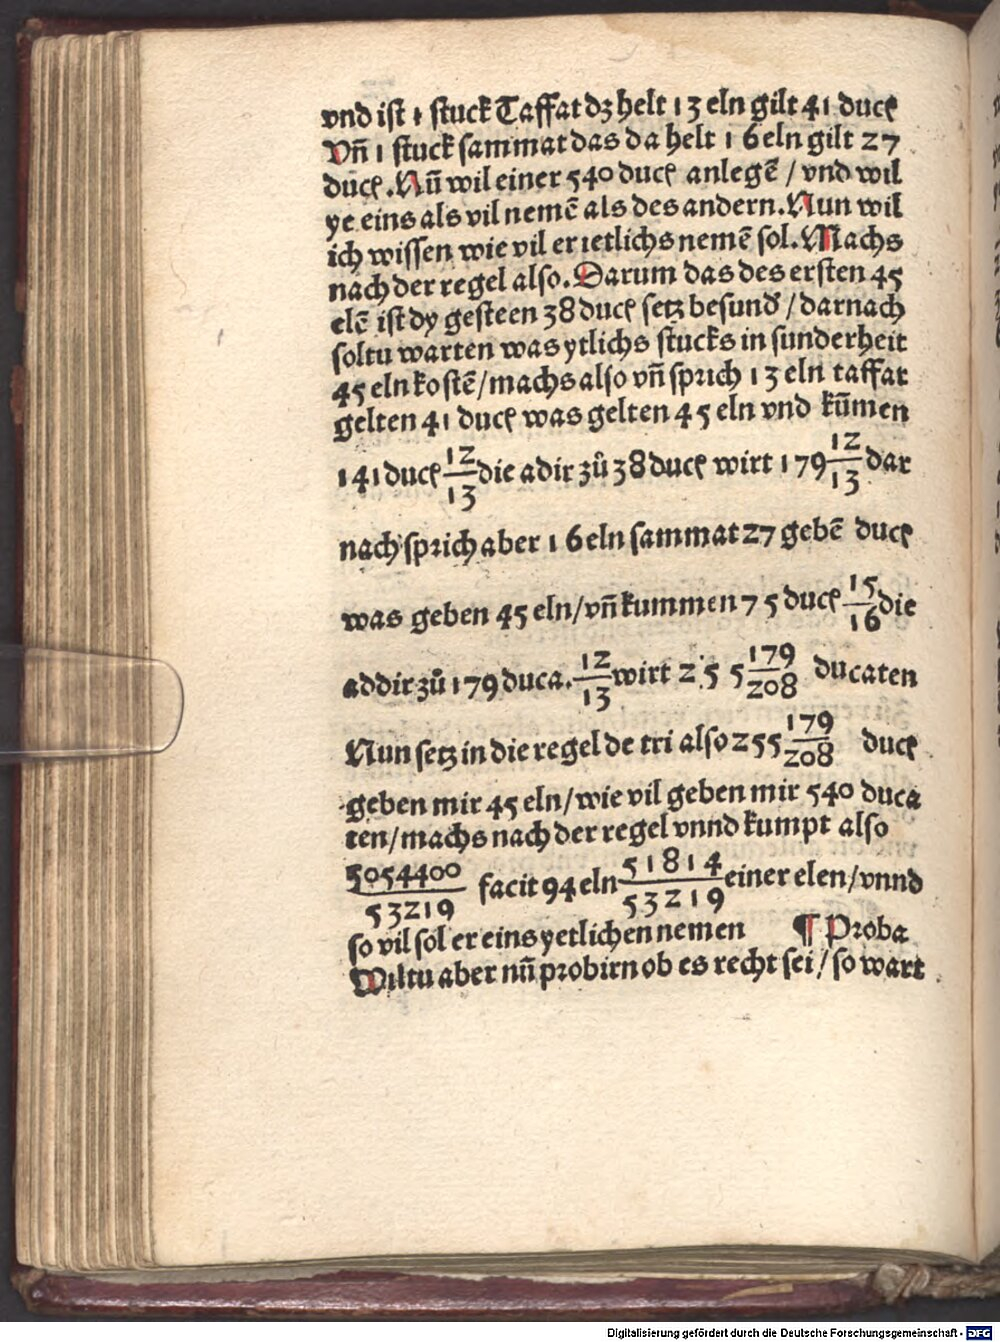 vnd ist 1 stuck Taffat dz helt 13 eln gilt 41 ducꝭ
Vñ 1 stuck sammat das da helt 16 eln gilt 27
ducꝭ. Nũ wil einer 540 ducꝭ anlegẽ / vnd wil
ye eins als vil nemẽ als des andern. Nun wil
ich wissen wie vil er ietlichs nemẽ sol. Machs
nach der regel also. Darum das des ersten 45
elẽ ist dy gesteen 38 ducꝭ setz besund̛ / darnach
soltu warten was ytlichs stucks in sunderheit
45 eln kostẽ / machs also vñ sprich 13 eln taffat
gelten 41 ducꝭ was gelten 45 eln vnd kũmen
141 ducꝭ 12/13 die adir zů 38 ducꝭ wirt 179 12/13 dar
nach sprich aber 16 eln sammat 27 gebẽ ducꝭ
was geben 45 eln / vñ kummen 75 ducꝭ 15/16 die
addir zů 179 duca. 12/13 wirt 255 179/208 ducaten
Nun setz in die regel de tri also 255 179/208 ducꝭ
geben mir 45 eln / wie vil geben mir 540 duca
ten / machs nach der regel vnnd kumpt also
5054400/53219 facit 94 eln 51814/53219 einer elen / vnnd
so vil sol er eins yetlichen nemen ¶ Proba
Wiltu aber nũ probirn ob es recht sei / so wart
Digitalisierung gefördert durch die Deutsche Forschungsgemeinschaft - DFG